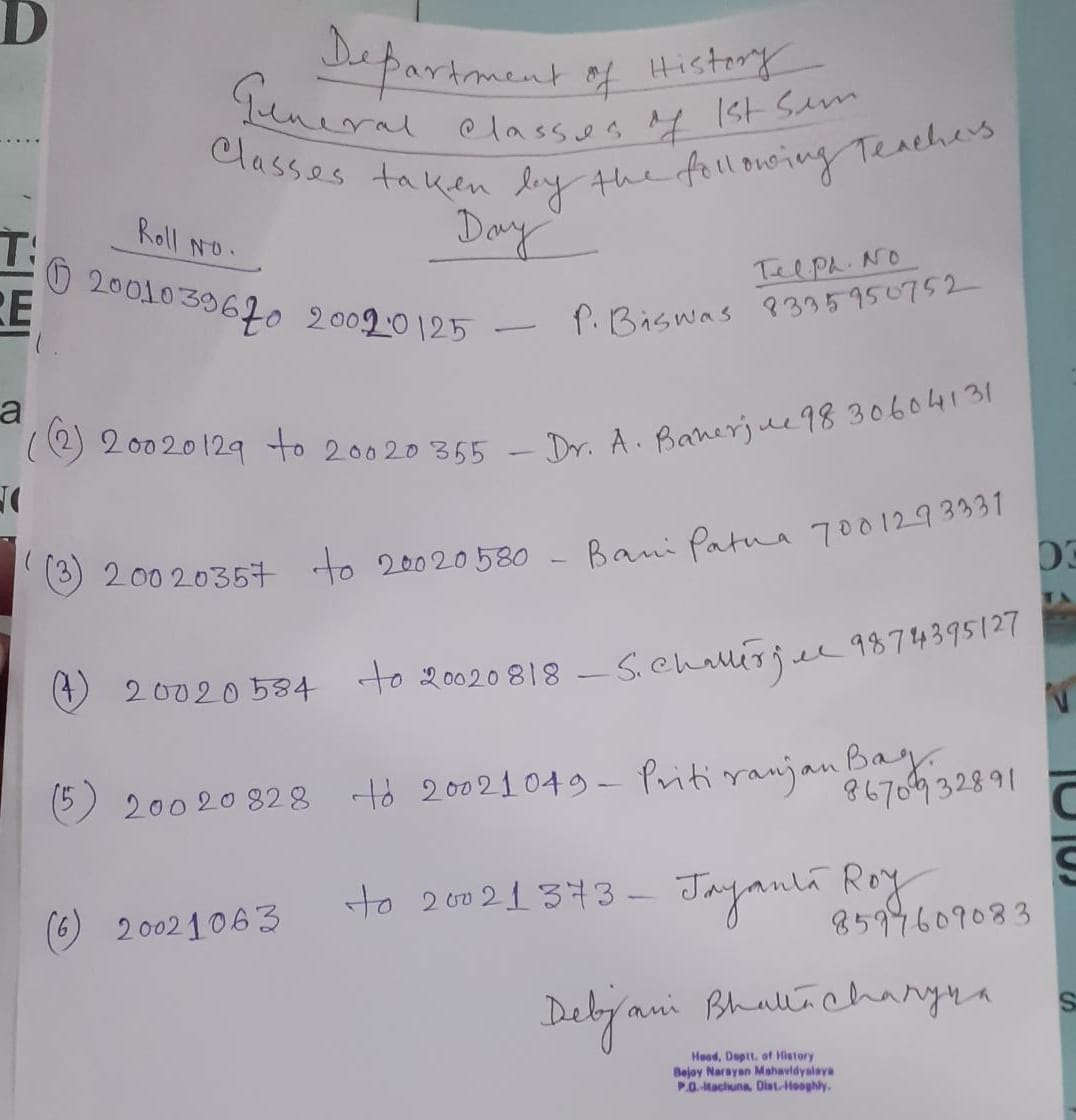 Department of History
General Classes of 1st Sem
Classes taken by the following Teachers
Day
Roll No. Telph. No
(1) to 20020125 — P. Biswas 8335950752
(2) 20020129 to 20020355 — Dr. A. Banerjee 9830604131
(3) 20020357 to 20020580 — Bani Patua 7001293331
(4) 20020584 to 20020818 — S. Chatterjee 9874395127
(5) 20020828 to 20021049 — Pritiranjan Bag.
8670932891
(6) 20021063 to 20021373 — Jayanta Roy
8597609083
Debjani Bhattacharyya
Head, Deptt. of History
Bejoy Narayan Mahavidyalaya
P.O.-Itachuna, Dist.-Hooghly.